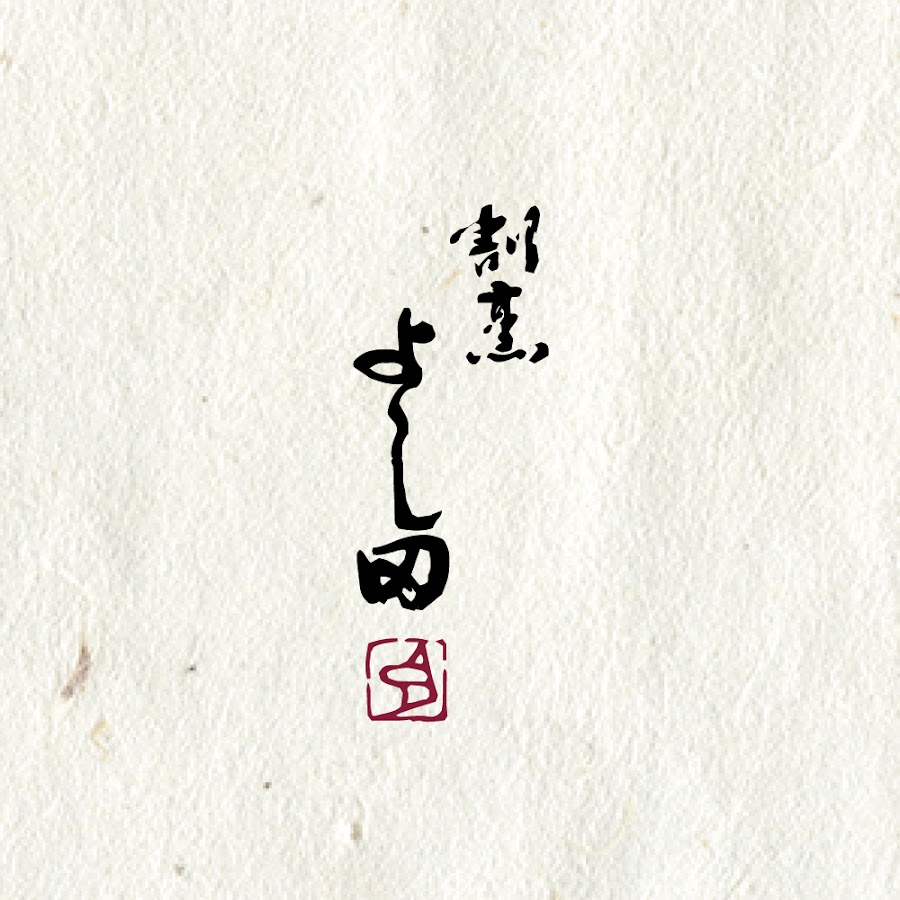 割烹
よし田